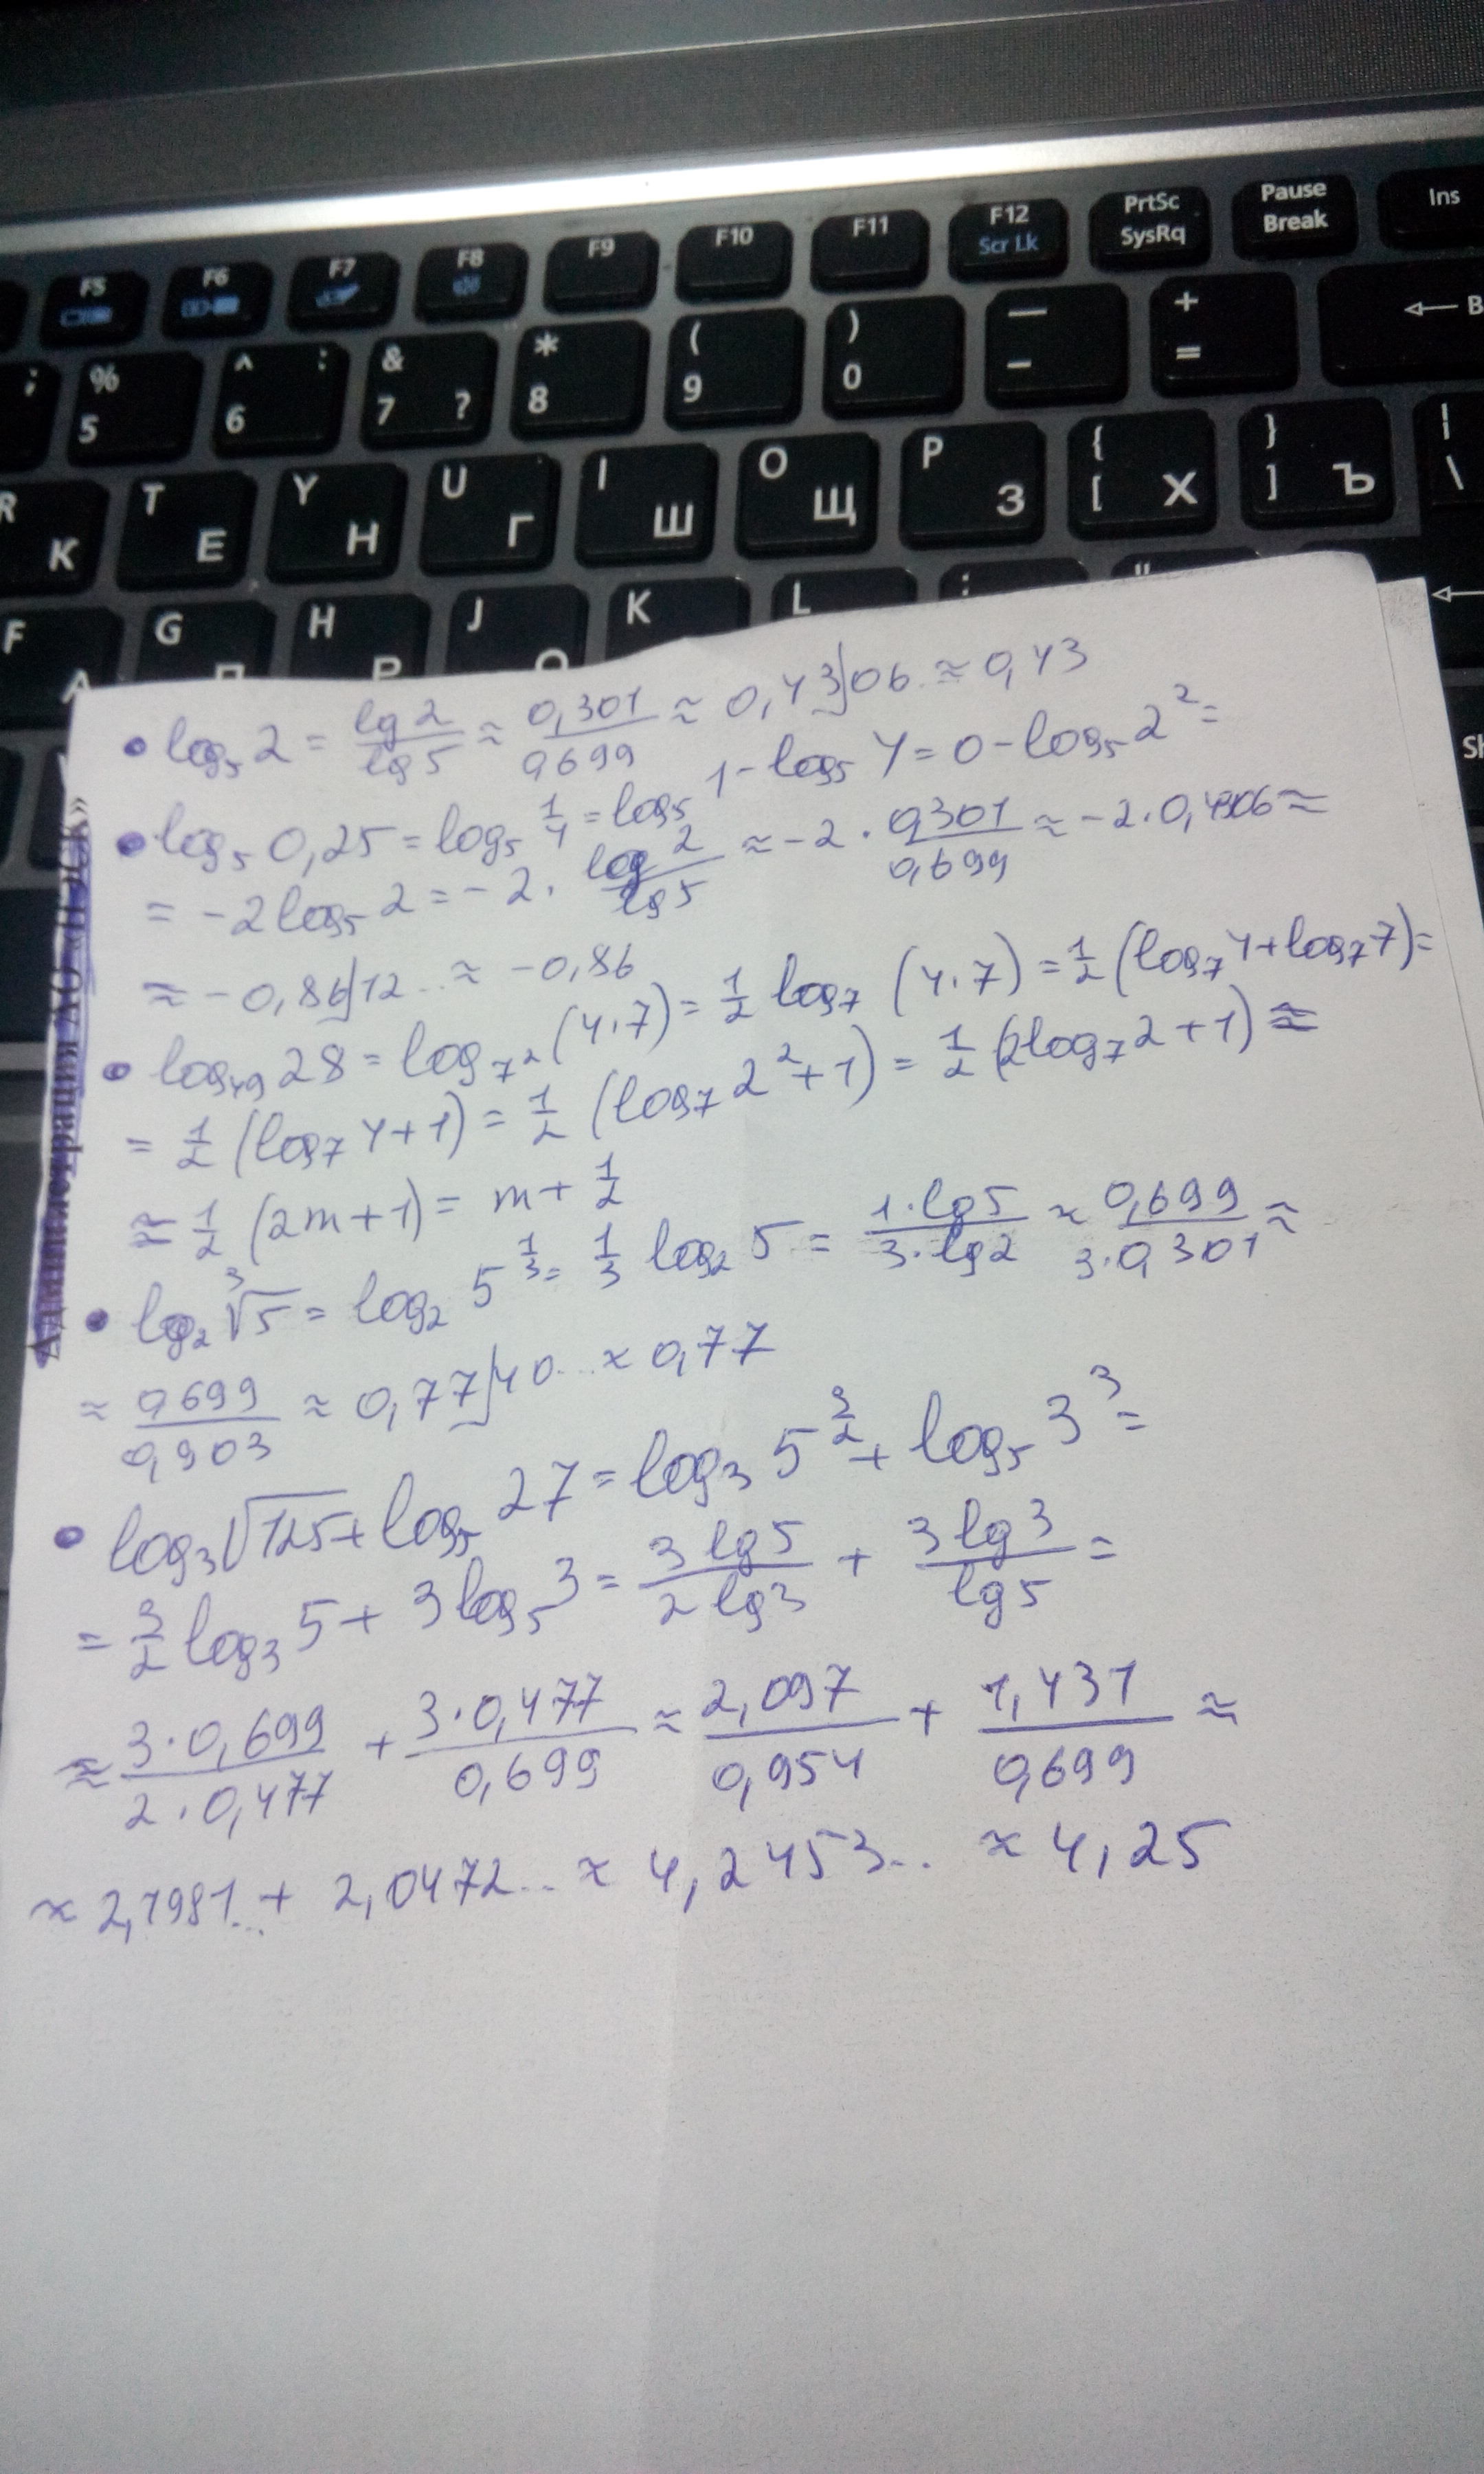 F5 F6 F7 F8 F9 F10 F11 F12 Scr Lk PrtSc SysRq Pause Break Ins
% 5 ^ : 6 & 7 ? * 8 ( 9 ) 0 — - + = ← B
R К T Е Y Н U Г I Ш O Щ P З { [ Х } ] Ъ | \
F А G П H Р J О K L : " ←
Sh
• log₅ 2 = lg 2 / lg 5 ≈ 0,301 / 0,699 ≈ 0,43|06.. ≈ 0,43
• log₅ 0,25 = log₅ 1/4 = log₅ 1 - log₅ 4 = 0 - log₅ 2² =
= -2 log₅ 2 = -2 · log 2 / lg 5 ≈ -2 · 0,301 / 0,699 ≈ -2 · 0,4306 ≈
≈ -0,86|12.. ≈ -0,86
• log₄₉ 28 = log₇² (4·7) = 1/2 log₇ (4·7) = 1/2 (log₇ 4 + log₇ 7) =
= 1/2 (log₇ 4 + 1) = 1/2 (log₇ 2² + 1) = 1/2 (2 log₇ 2 + 1) ≈
≈ 1/2 (2m + 1) = m + 1/2
• log₂ ³√5 = log₂ 5^(1/3) = 1/3 log₂ 5 = 1·lg 5 / 3·lg 2 ≈ 0,699 / 3·0,301 ≈
≈ 0,699 / 0,903 ≈ 0,77|40... ≈ 0,77
• log₃ √125 + log₅ 27 = log₃ 5^(3/2) + log₅ 3³ =
= 3/2 log₃ 5 + 3 log₅ 3 = 3 lg 5 / 2 lg 3 + 3 lg 3 / lg 5 =
≈ 3·0,699 / 2·0,477 + 3·0,477 / 0,699 ≈ 2,097 / 0,954 + 1,431 / 0,699 ≈
≈ 2,1981... + 2,0472... ≈ 4,2453... ≈ 4,25
Администрация АО